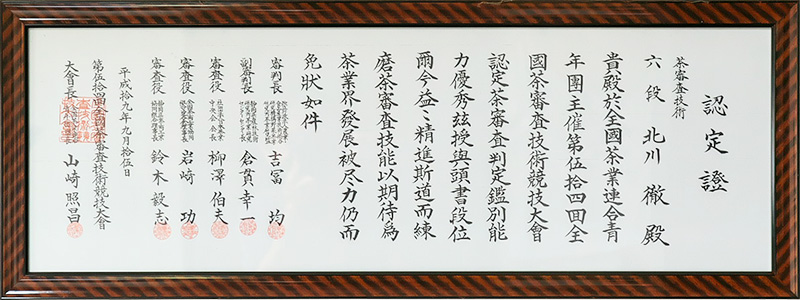 認定證
茶審査技術
六段 北川 徹 殿
貴殿於全國茶業連合青
年團主催第伍拾四回全
國茶審査技術競技大會
認定茶審査判定鑑別能
力優秀茲授與頭書段位
爾今益々精進斯道而練
磨茶審査技能以期待為
茶業界發展被尽力仍而
免狀如件
審判長 吉冨 均
副審判長 倉貫幸一
審査役 柳澤伯夫
審査役 岩崎 功
審査役 鈴木毅志
平成拾九年九月拾伍日
第伍拾四回全國茶審査技術競技大會
大會長 山崎照昌